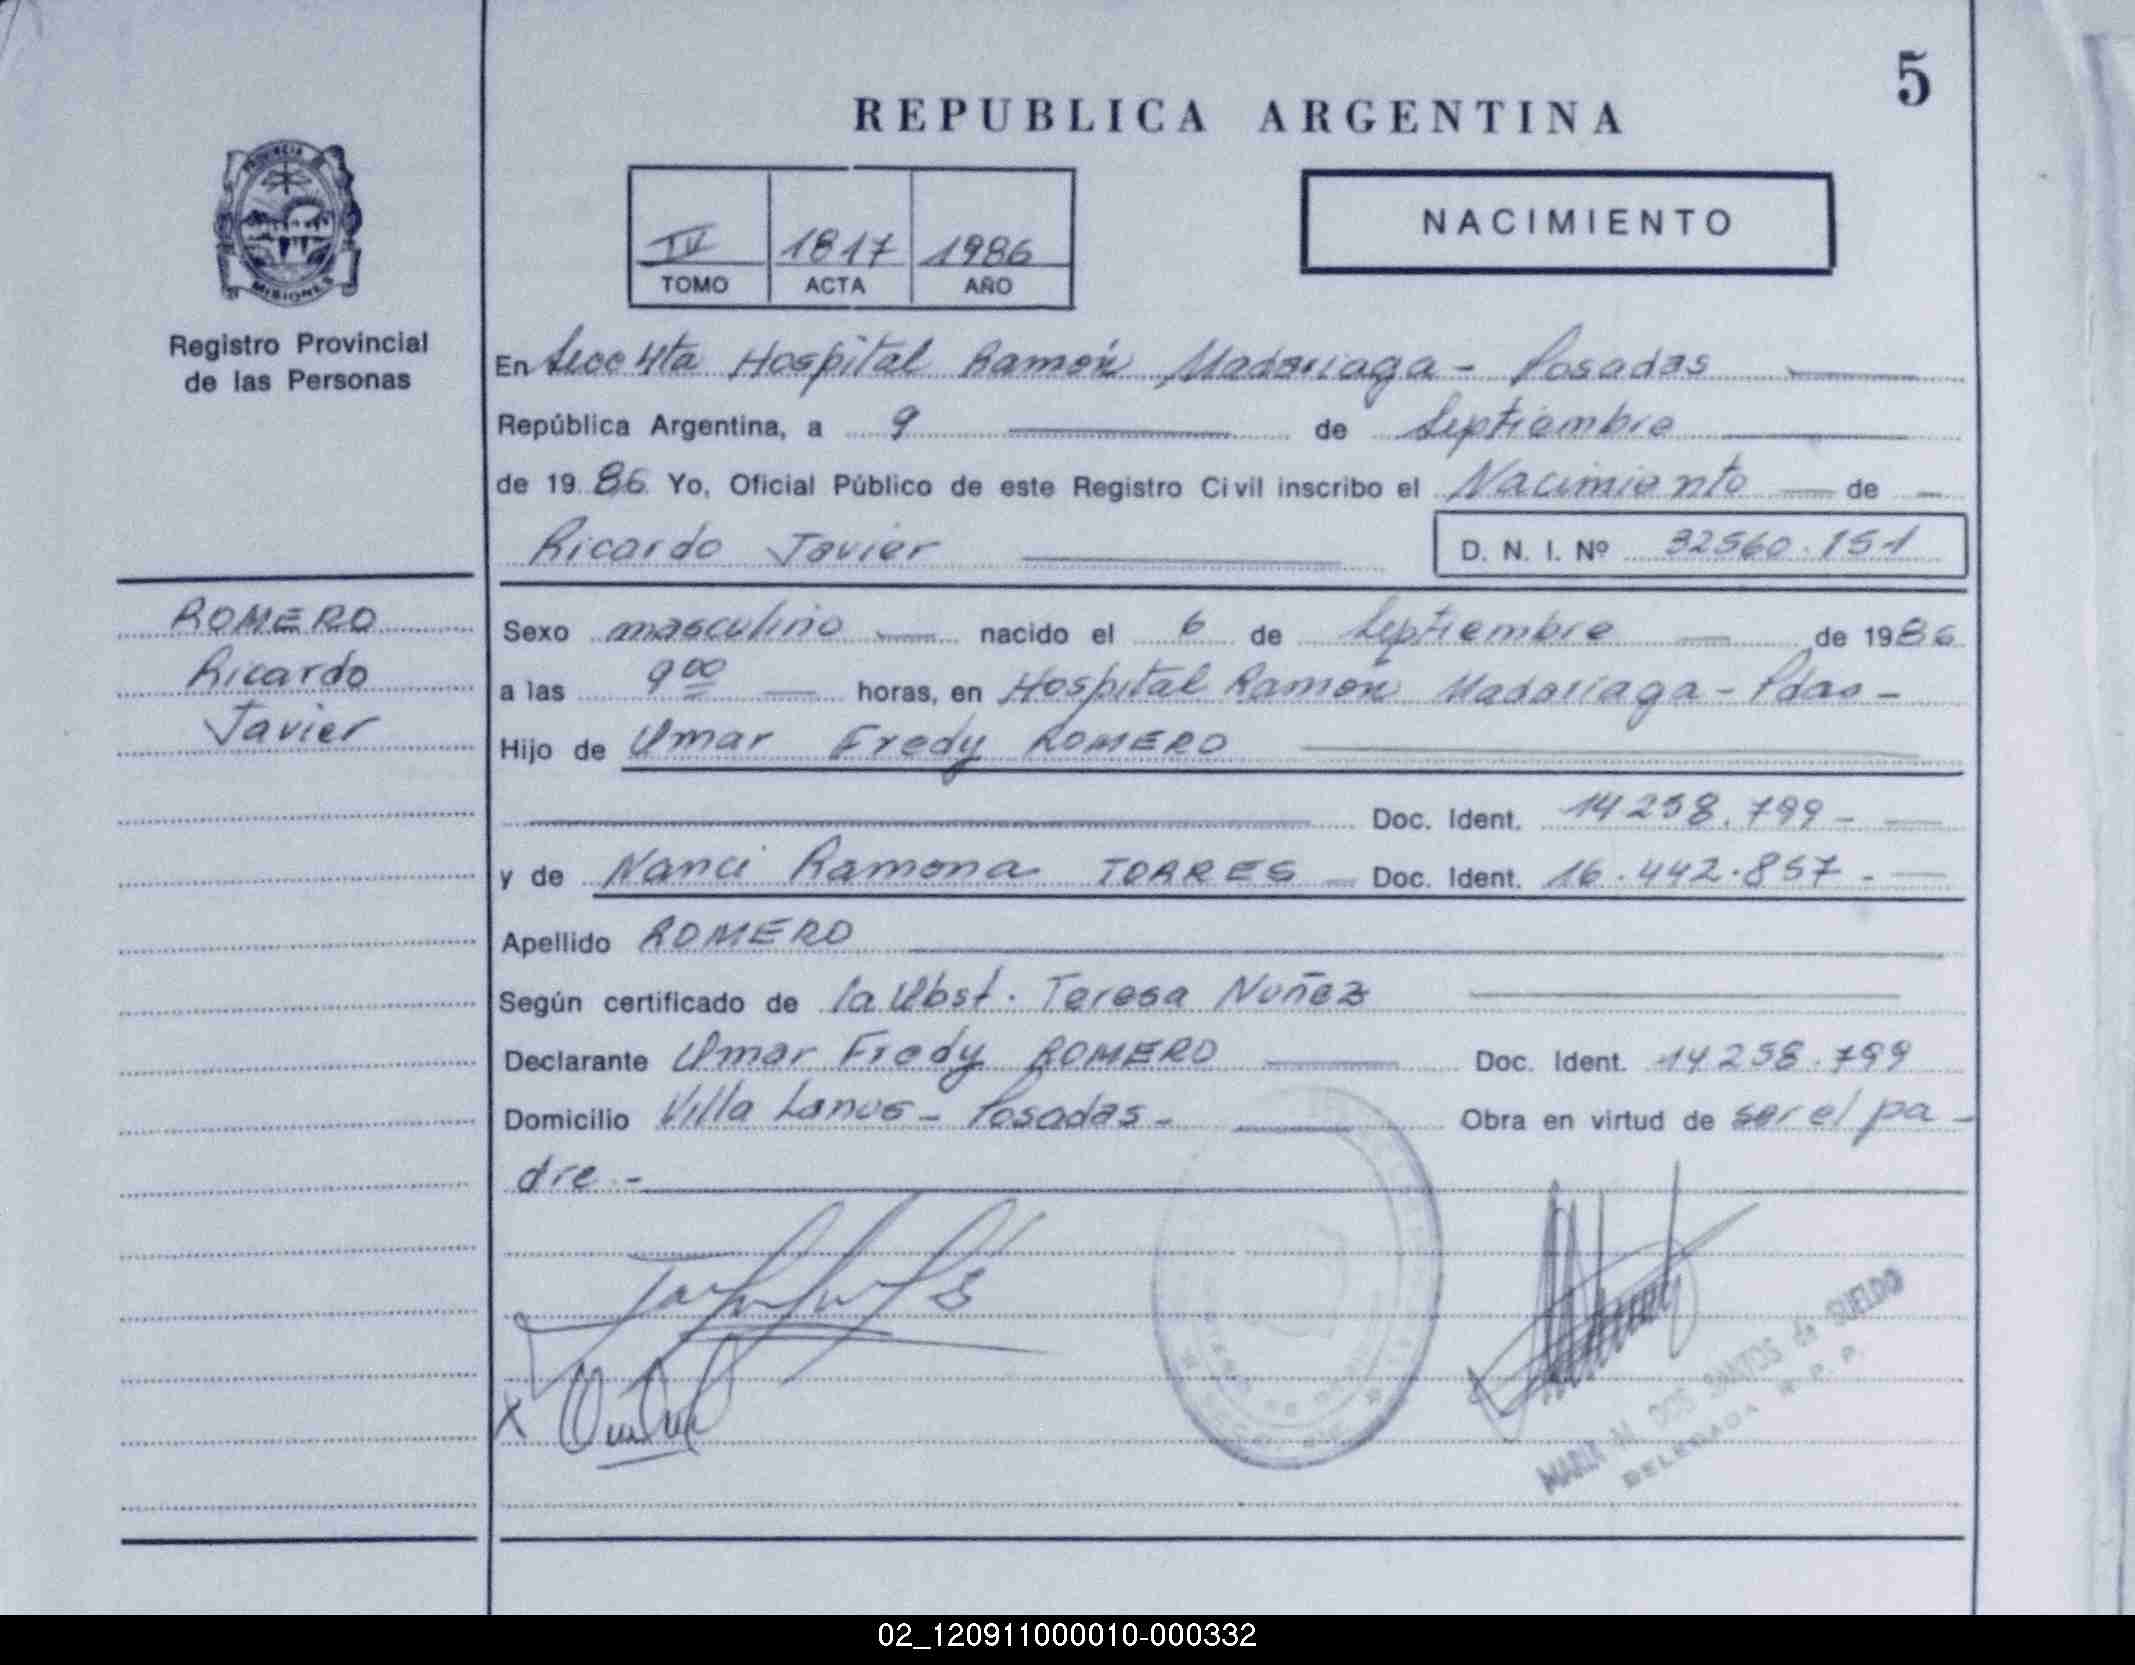 5
REPUBLICA ARGENTINA
PROVINCIA
MISIONES
Registro Provincial
de las Personas
IV 1817 1986
TOMO ACTA AÑO
NACIMIENTO
En Secc 4ta Hospital Ramón Madariaga - Posadas
República Argentina, a 9 de Septiembre
de 19 86 Yo, Oficial Público de este Registro Civil inscribo el Nacimiento de
Ricardo Javier D. N. I. Nº 32560.151
ROMERO
Ricardo
Javier
Sexo masculino nacido el 6 de Septiembre de 1986
a las 9 00 horas, en Hospital Ramón Madariaga - Pdas -
Hijo de Omar Fredy ROMERO
Doc. Ident. 14258.799 -
y de Nanci Ramona TORRES Doc. Ident. 16.442.857 -
Apellido ROMERO
Según certificado de la Obst. Teresa Nuñez
Declarante Omar Fredy ROMERO Doc. Ident. 14258.799
Domicilio Villa Lanus - Posadas - Obra en virtud de ser el pa -
dre -
X
MARIA M. DOS SANTOS de SUELDO
DELEGADA R. P. P.
02_120911000010-000332